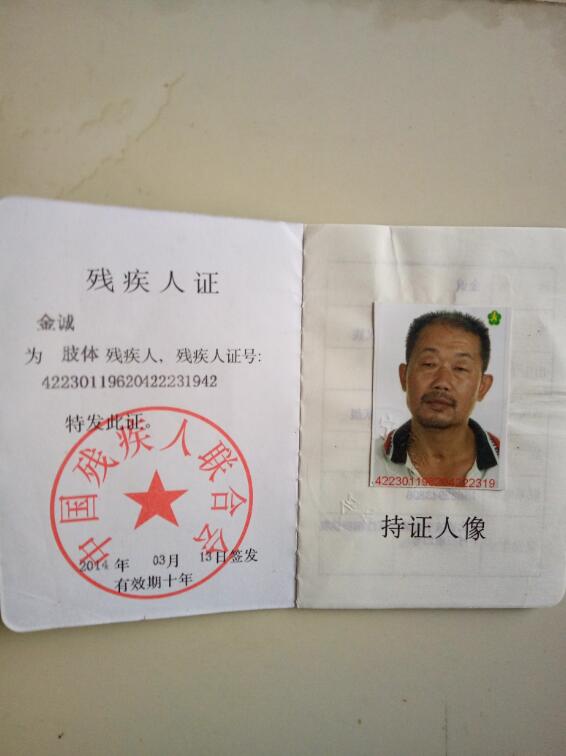 残疾人证
金诚
为 肢体 残疾人，残疾人证号:
42230119620422231942
特发此证。
中国残疾人联合会
2014 年 03月 13日签发
有效期十年
持证人像